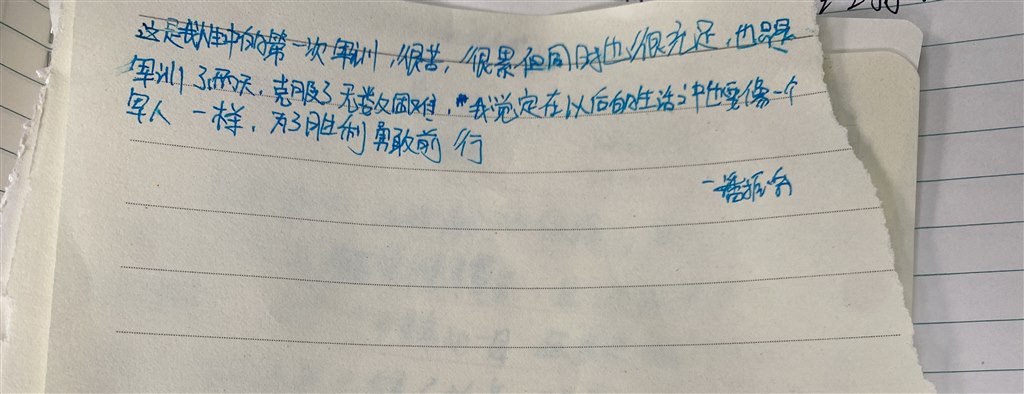 这是我人生中的第一次军训,很苦,很累但同时也很充足,也只是
军训了两天,克服了无数困难,我觉定在以后的生活之中也要像一个
军人一样,为了胜利勇敢前行